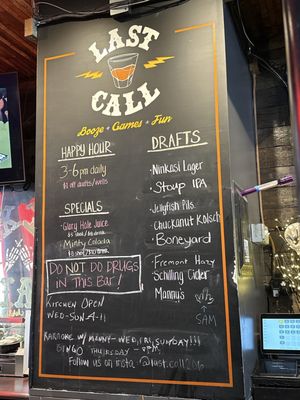 LAST
CALL
Booze • Games • Fun
HAPPY HOUR
3-6pm daily
$1 off drafts/wells
SPECIALS
Glory Hole Juice
Minty Colada
DO NOT DO DRUGS
IN This Bar!
KITCHEN OPEN
WED-SUN 4-11
DRAFTS
• Ninkasi Lager
• Stoup IPA
• Jellyfish Pils
• Chuckanut Kolsch
• Boneyard
• Fremont Hazy
• Schilling Cider
• Mannys
SAM
KARAOKE W/ MANNY - WED, FRI, SUNDAY!!!
BINGO THURSDAY - 8PM
Follow us on insta